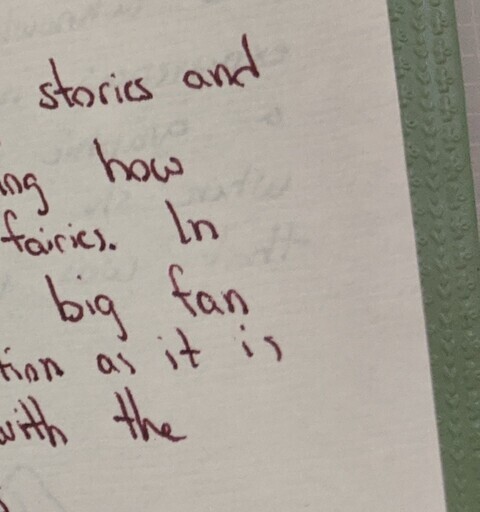 stories and
ing how
fairies. In
big fan
tion as it is
with the